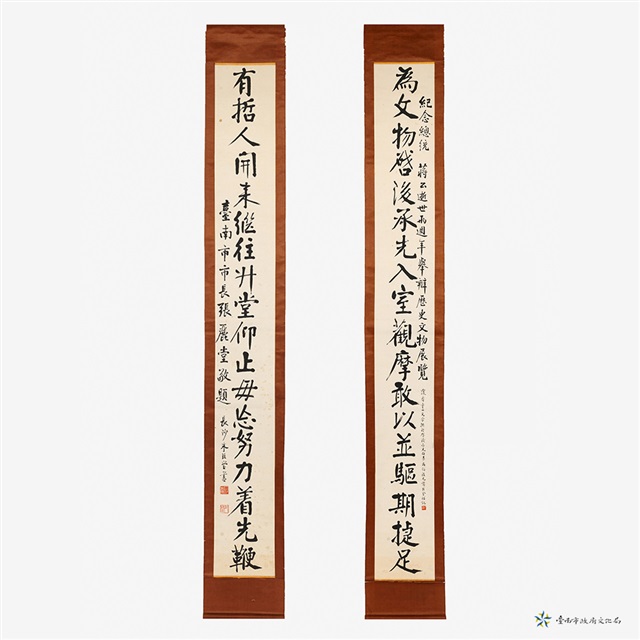 為文物啓後承先入室觀摩敢以並驅期捷足
紀念總統 蔣公逝世兩週年舉辦歷史文物展覽
有哲人開來繼往升堂仰止毋忘努力着先鞭
臺南市市長張麗堂敬題
臺南市政府文化局